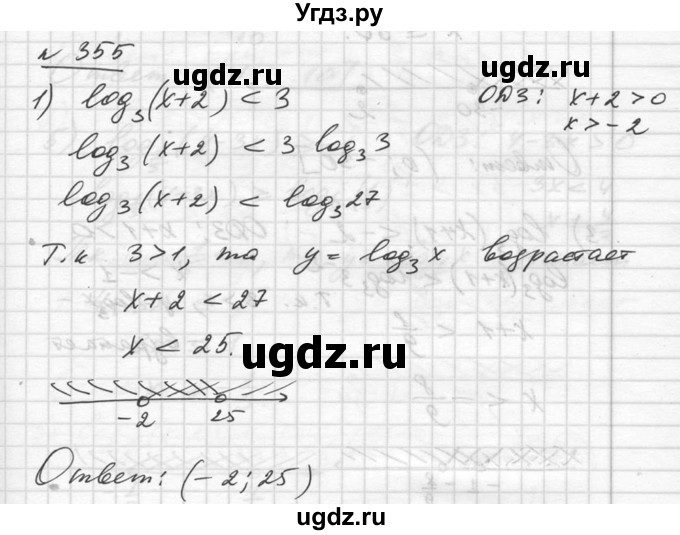 Угдз.ру
№ 355
ugdz.ru ugdz.ru
1) log₃(x+2) < 3 ОДЗ: x+2>0
x>-2
log₃(x+2) < 3 log₃3
log₃(x+2) < log₃27
Т.к 3>1, то y = log₃x возрастает
x+2 < 27
x < 25.
ugdz.ru
-2 25
Ответ: (-2; 25)
ugdz.ru
ugdz.ru